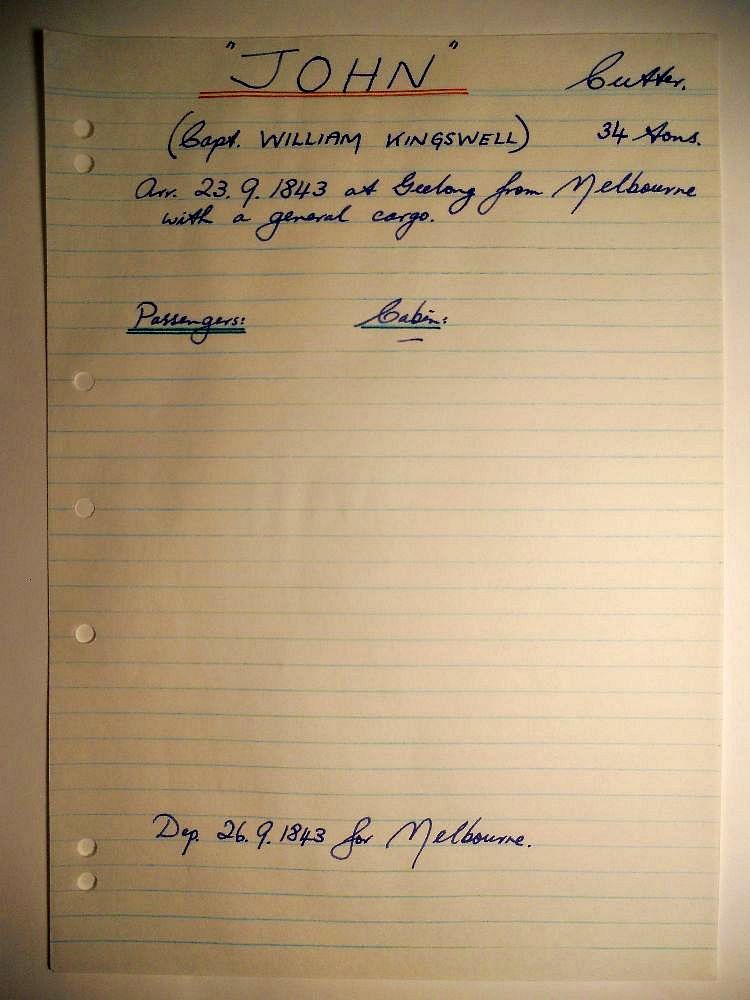 "JOHN" Cutter.
(Capt. WILLIAM KINGSWELL) 34 tons.
Arr. 23.9.1843 at Geelong from Melbourne
with a general cargo.
Passengers: Cabin:
—
Dep. 26.9.1843 for Melbourne.